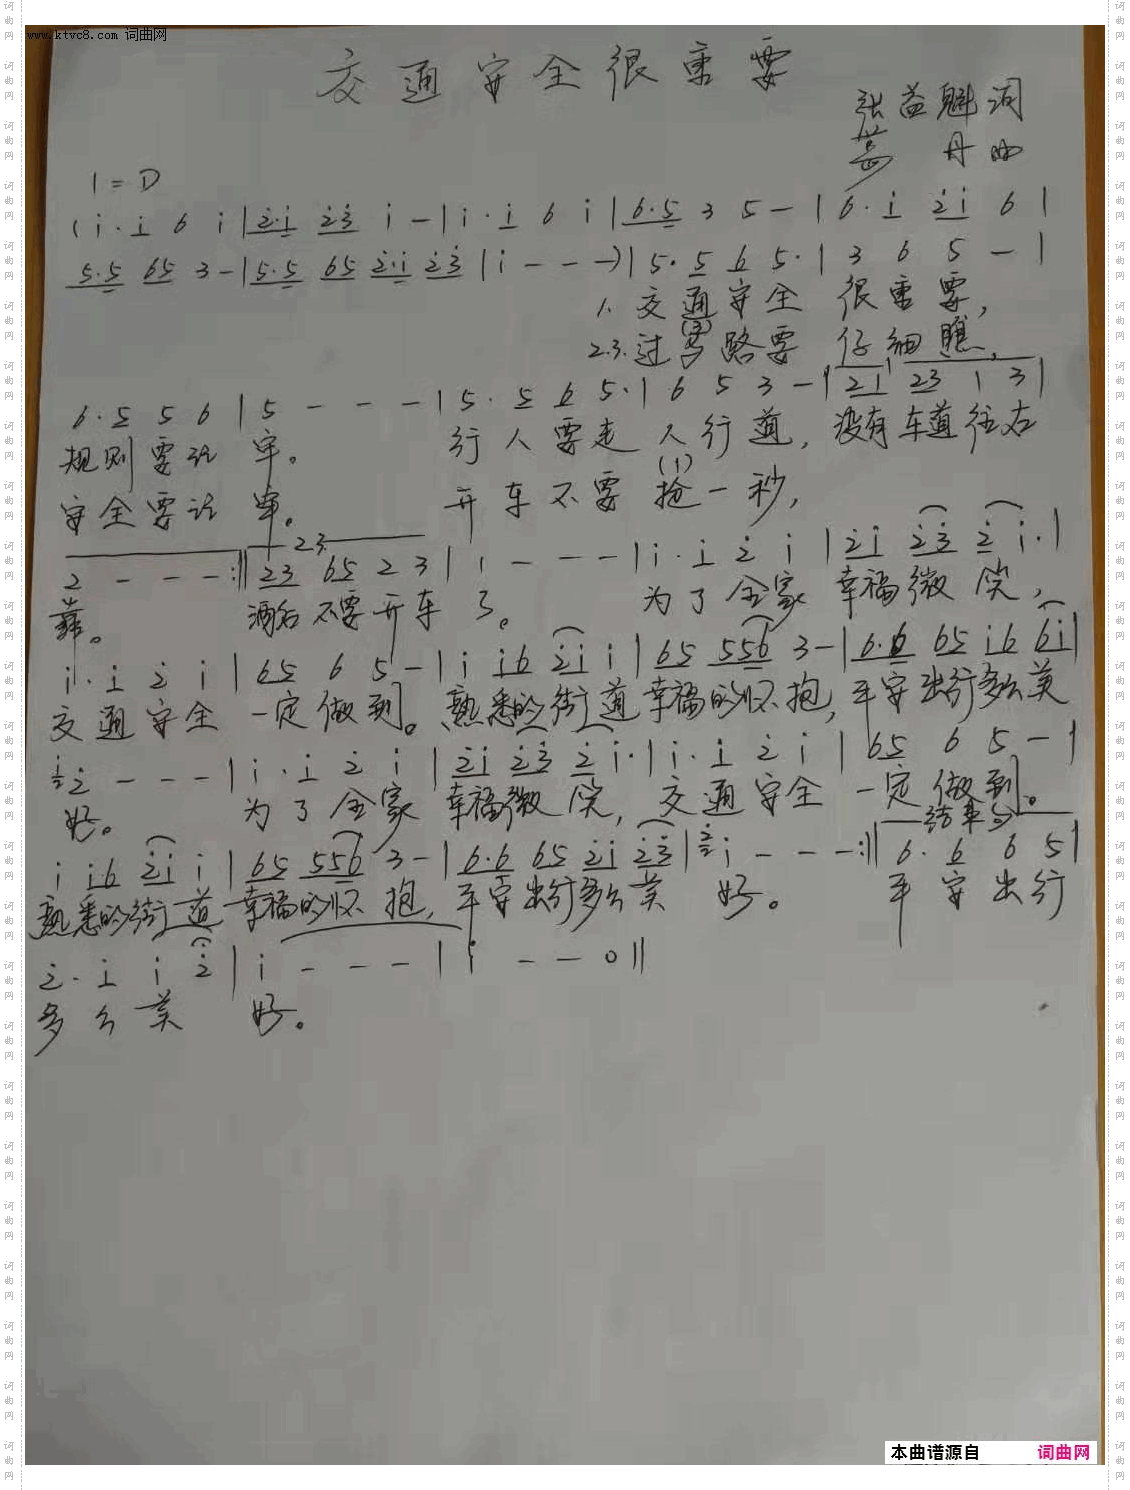 www.ktvc8.com 词曲网
交通安全很重要
张益魁 词
丹 曲
1=D
(i·i 6 i|2·i 23 i -|i·i 6 i|6·5 3 5 -|6·i 2i 6|
5·5 65 3-|5·5 65 2·i 23|i - - -)|5·5 6 5·|3 6 5 -|
1. 交通安全 很重要,
(3)
2.3. 过马路要 仔细瞧,
6·5 5 6|5 - - -|5·5 6 5·|6 5 3 -|21 23 1 3|
规则要记牢。 行人要走人行道,没有车道往右
(1)
安全要记牢。 开车不要抢一秒,
23
2 - - -:||23 65 2 3|1 - - -|i·i 2 i|2i 23 2 i·|
靠。 酒后不要开车了。 为了全家幸福微笑,
i·i 2 i|65 6 5 -|i i6 2i i|65 556 3-|6·6 65 i6 6i|
交通安全一定做到。熟悉的街道幸福的怀抱,平安出行多么美
2i - - -|i·i 2 i|2i 23 2 i·|i·i 2 i|65 6 5 -|
好。 为了全家幸福微笑,交通安全一定做到。
结束句
i i6 2i i|65 556 3-|6·6 65 2i 23|2i - - -:||6·6 6 5|
熟悉的街道幸福的怀抱,平安出行多么美好。 平安出行
2·i i 2|i - - -|i - - 0||
多么美 好。
本曲谱源自 词曲网